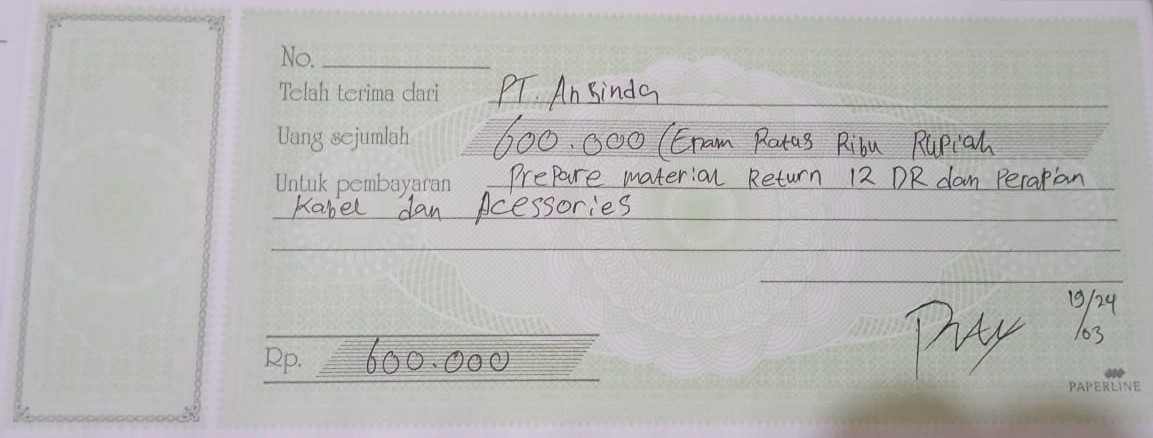 No.
Telah terima dari PT. Ansinda
Uang sejumlah 600.000 (Enam Ratus Ribu Rupiah
Untuk pembayaran Prepare material Return 12 DR dan Perapian
Kabel dan Acessories
19/24
/03
Rp. 600.000
PAPERLINE